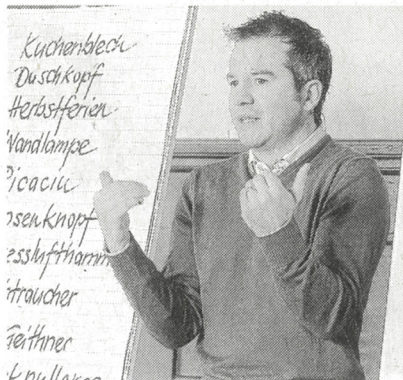 Kuchenblech
Duschkopf
Herbstferien
Wandlampe
Picaciu
osenknopf
esslufthamm
traucher
Teithner